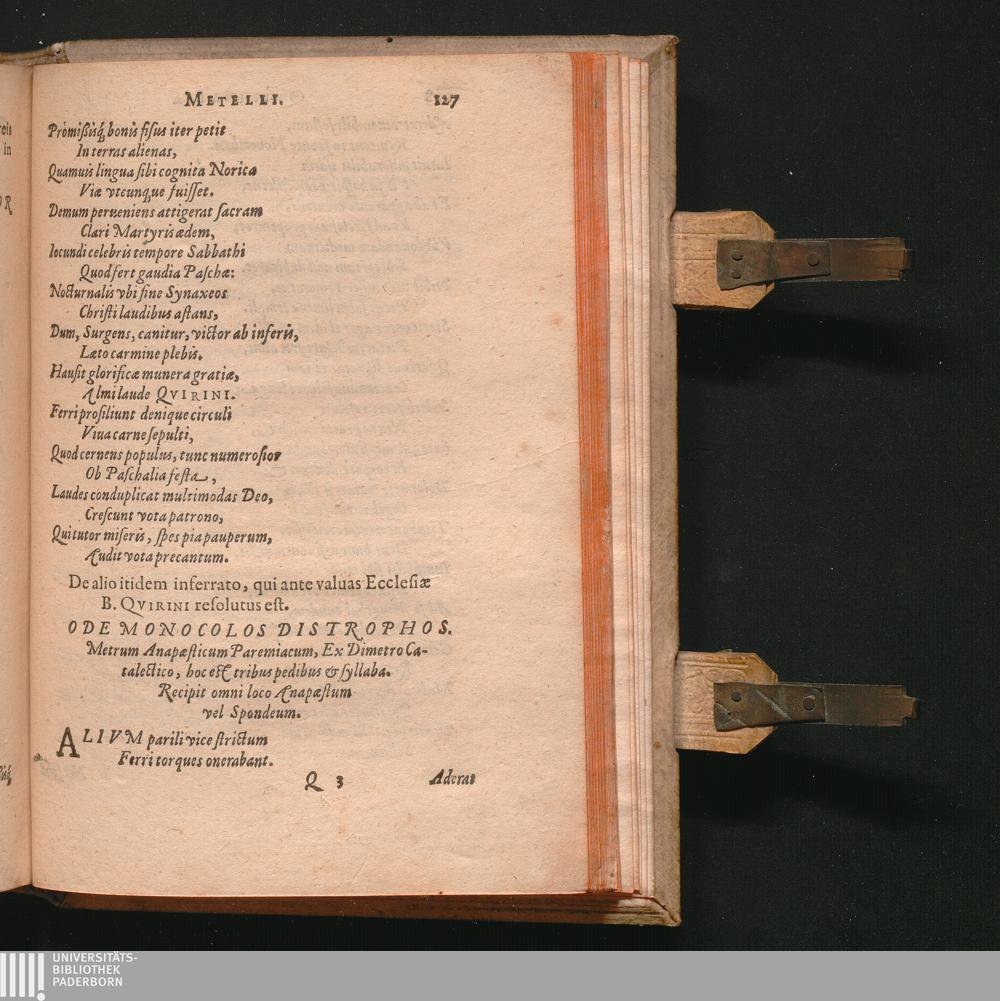 METELLI. 127
Promißisq́; bonis fisus iter petit
In terras alienas,
Quamuis lingua sibi cognita Norica
Viæ vtcunq́ue fuisset.
Demum perueniens attigerat sacram
Clari Martyris ædem,
Iocundi celebris tempore Sabbathi
Quod fert gaudia Paschæ:
Nocturnalis vbi fine Synaxeos
Christi laudibus astans,
Dum, Surgens, canitur, victor ab inferis,
Læto carmine plebis.
Hausit glorificæ munera gratiæ,
Almi laude QVIRINI.
Ferri prosiliunt denique circuli
Viua carne sepulti,
Quod cernens populus, tunc numerosior
Ob Paschalia festa,
Laudes conduplicat multimodas Deo,
Crescunt vota patrono,
Qui tutor miseris, spes pia pauperum,
Audit vota precantum.
De alio itidem inferrato, qui ante valuas Ecclesiæ
B. QVIRINI resolutus est.
ODE MONOCOLOS DISTROPHOS.
Metrum Anapæsticum Paremiacum, Ex Dimetro Ca-
talectico, hoc est tribus pedibus & syllaba.
Recipit omni loco Anapæstum
vel Spondeum.
ALIVM parili vice strictum
Ferri torques onerabant.
Q 3 Aderat
UNIVERSITÄTS-
BIBLIOTHEK
PADERBORN